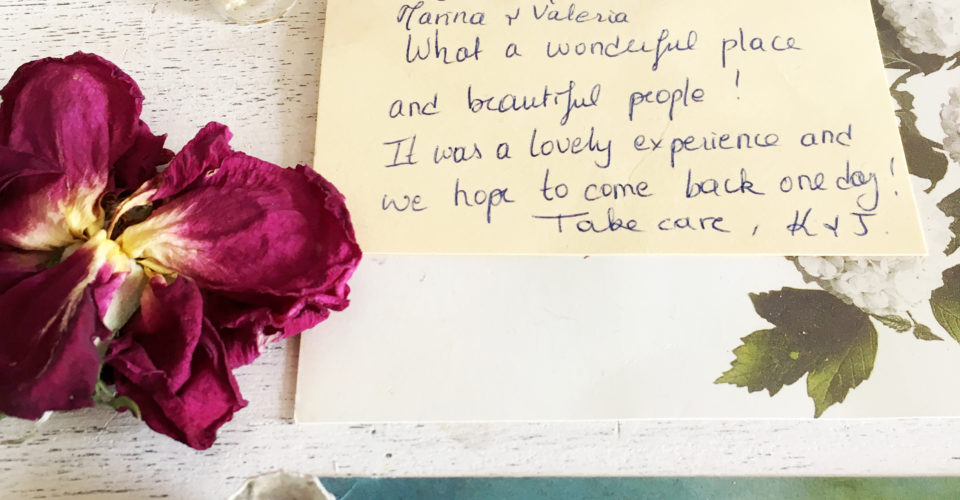 Marina & Valeria
What a wonderful place
and beautiful people !
It was a lovely experience and
we hope to come back one day!
Take care, K & J.